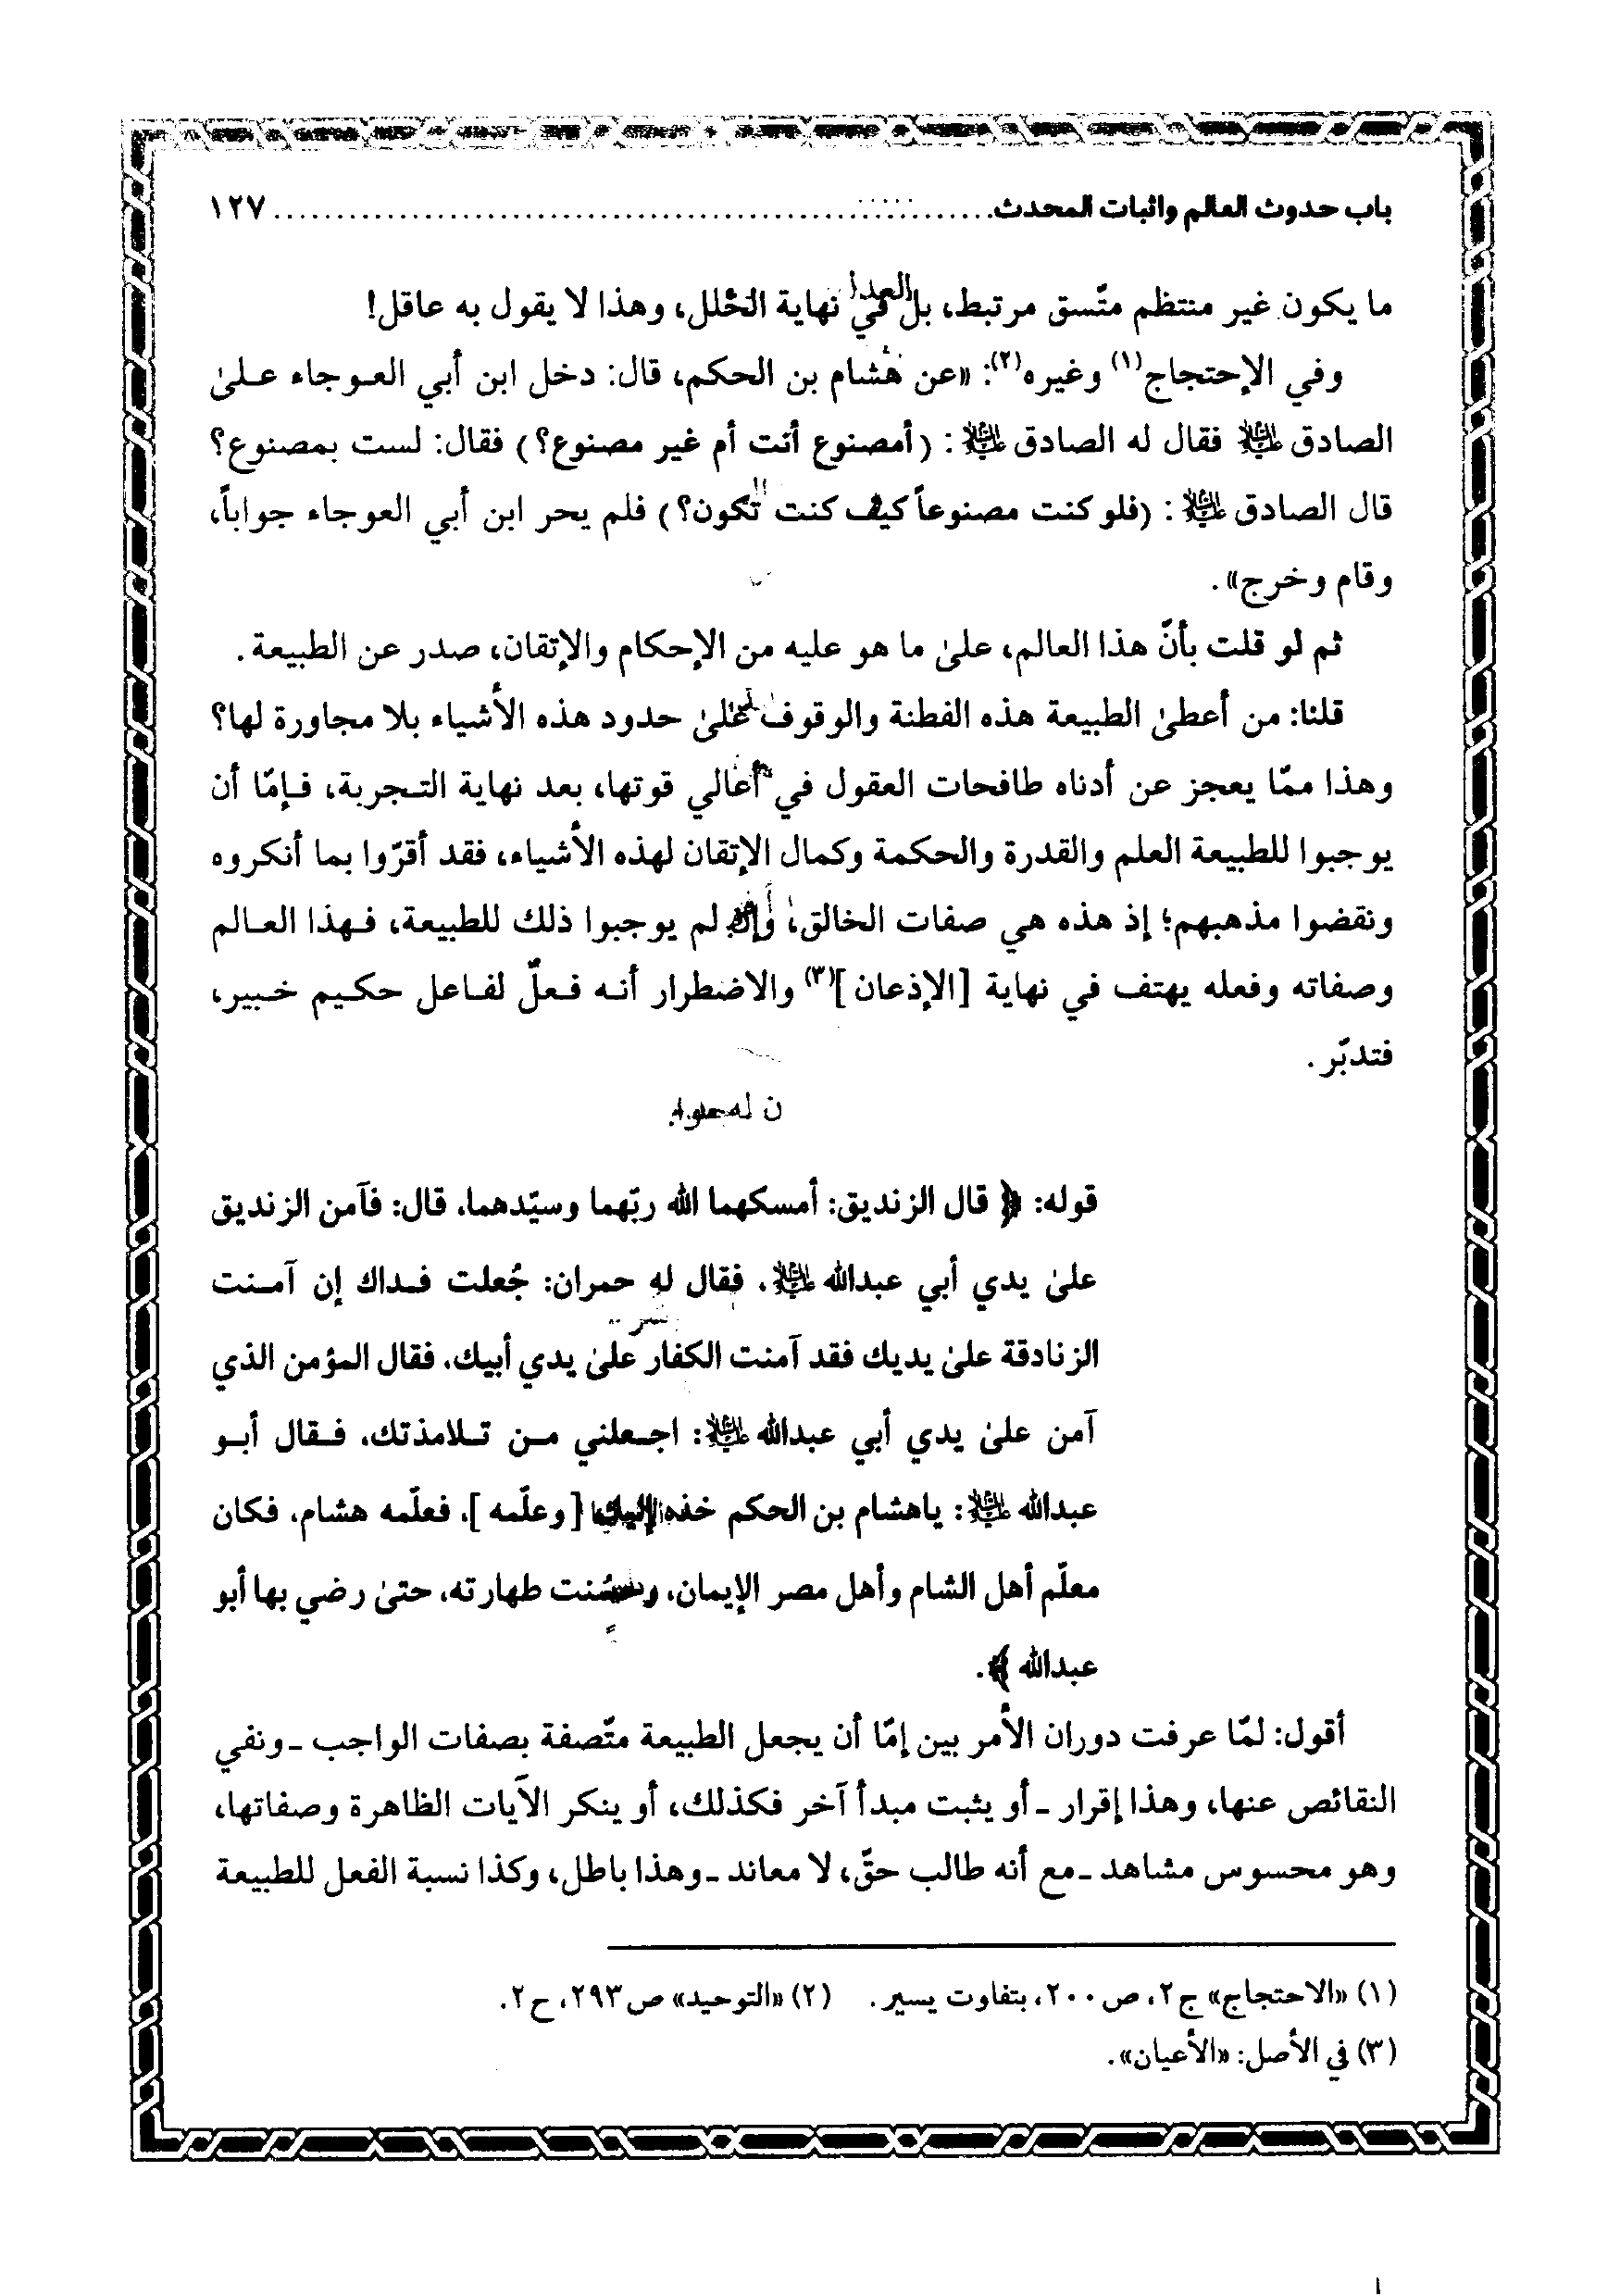 باب حدوث العالم واثبات المحدث ........................................................... ١٢٧
ما يكون غير منتظم متّسق مرتبط، بل في نهاية الخلل، وهذا لا يقول به عاقل!
وفي الإحتجاج(١) وغيره(٢): «عن هشام بن الحكم، قال: دخل ابن أبي العوجاء علىٰ
الصادق عليه السلام فقال له الصادق عليه السلام : (أمصنوع أنت أم غير مصنوع؟) فقال: لست بمصنوع؟
قال الصادق عليه السلام : (فلو كنت مصنوعاً كيف كنت تكون؟) فلم يحر ابن أبي العوجاء جواباً،
وقام وخرج».
ثم لو قلت بأنّ هذا العالم، علىٰ ما هو عليه من الإحكام والإتقان، صدر عن الطبيعة.
قلنا: من أعطىٰ الطبيعة هذه الفطنة والوقوف علىٰ حدود هذه الأشياء بلا مجاورة لها؟
وهذا ممّا يعجز عن أدناه طافحات العقول في أعالي قوتها، بعد نهاية التجربة، فإمّا أن
يوجبوا للطبيعة العلم والقدرة والحكمة وكمال الإتقان لهذه الأشياء، فقد أقرّوا بما أنكروه
ونقضوا مذهبهم؛ إذ هذه هي صفات الخالق، وإن لم يوجبوا ذلك للطبيعة، فهذا العالم
وصفاته وفعله يهتف في نهاية [الإذعان](٣) والاضطرار أنه فعلٌ لفاعل حكيم خبير،
فتدبّر.
قوله: ﴿ قال الزنديق: أمسكهما الله ربّهما وسيّدهما، قال: فآمن الزنديق
علىٰ يدي أبي عبدالله عليه السلام، فقال له حمران: جُعلت فداك إن آمنت
الزنادقة علىٰ يديك فقد آمنت الكفار علىٰ يدي أبيك، فقال المؤمن الذي
آمن علىٰ يدي أبي عبدالله عليه السلام: اجعلني من تلامذتك، فقال أبو
عبدالله عليه السلام: ياهشام بن الحكم خذه إليك [وعلّمه]، فعلّمه هشام، فكان
معلّم أهل الشام وأهل مصر الإيمان، وحسُنت طهارته، حتىٰ رضي بها أبو
عبدالله ﴾.
أقول: لمّا عرفت دوران الأمر بين إمّا أن يجعل الطبيعة متّصفة بصفات الواجب ـ ونفي
النقائص عنها، وهذا إقرار ـ أو يثبت مبدأ آخر فكذلك، أو ينكر الآيات الظاهرة وصفاتها،
وهو محسوس مشاهد ـ مع أنه طالب حقّ، لا معاند ـ وهذا باطل، وكذا نسبة الفعل للطبيعة
(١) «الاحتجاج» ج٢، ص٢٠٠، بتفاوت يسير. (٢) «التوحيد» ص٢٩٣، ح٢.
(٣) في الأصل: «الأعيان».